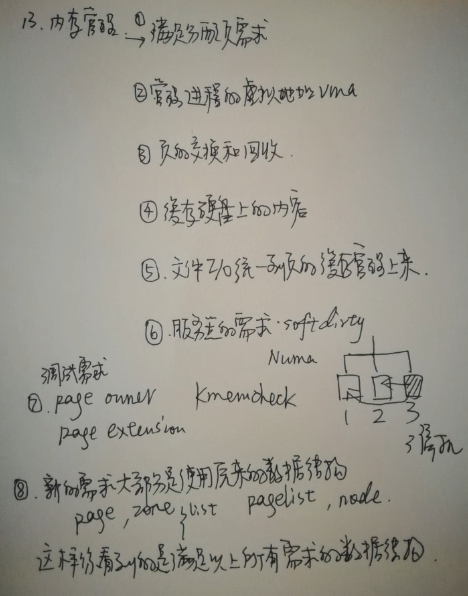 13. 内存管理 → ① 满足分配页需求
② 管理进程的虚拟地址vma
③ 页的交换和回收.
④ 缓存硬盘上的内容
⑤. 文件I/O统一到页的缓存管理上来.
⑥. 服务的需求. softdirty
Numa
1 2 3
调试需求
⑦. page owner kmemcheck
page extension
⑧. 新的需求大部分是使用原来的数据结构
page, zone, list pagelist, node.
这样你看到的是满足以上所有需求的数据结构.